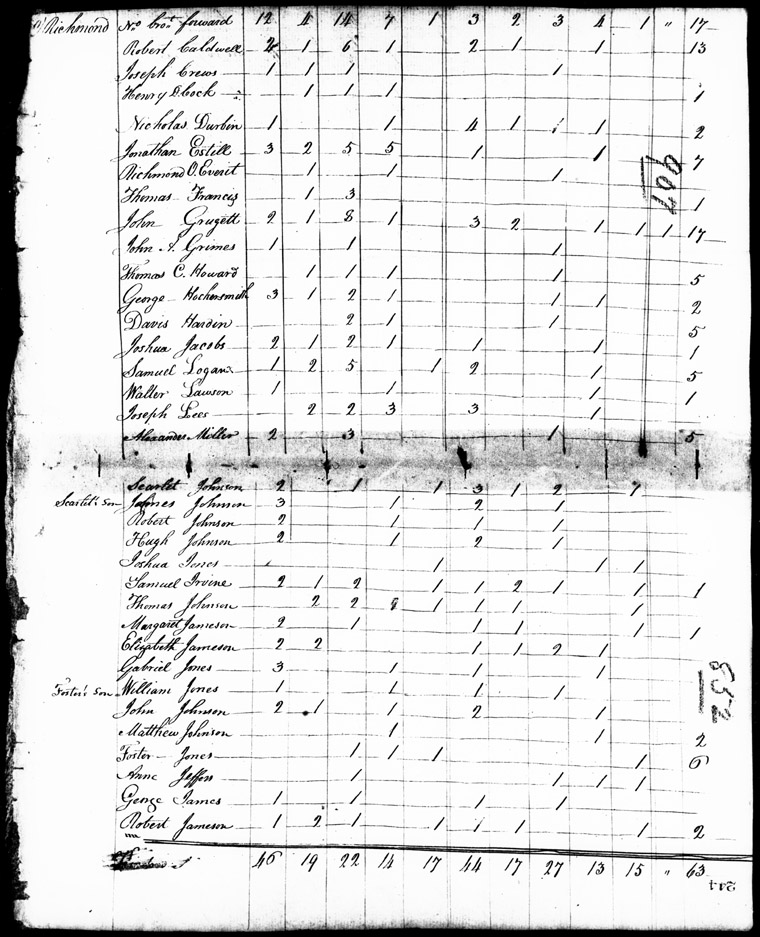 Richmond No. bro.t forward 12 4 14 7 1 3 2 3 4 1 " 17
Robert Caldwell 2 1 6 1 2 1 1 13
Joseph Crews 1 1 1 1
Henry D. Cock 1 1 1 1
Nicholas Durbin 1 1 4 1 1 1 2
Jonathan Estill 3 2 5 5 1 1 7
Richmond O. Everit 1 1 1
Thomas Francis 1 3 1
John Grugett 2 1 8 1 3 2 1 1 1 17
John A. Grimes 1 1 1
Thomas C. Howard 1 1 1 1 5
George Hockersmith 3 1 2 1 1 1 2
Davis Hardin 2 1 1 5
Joshua Jacobs 2 1 2 1 1 1 1
Samuel Logan 1 2 5 1 2 1 5
Walter Lawson 1 1 1 1
Joseph Lees 2 2 3 3 1
Alexander Miller 2 3 1 5
907
Scarlet Johnson 2 1 1 3 1 2 7
Scarlet's son James Johnson 3 1 2 1
Robert Johnson 2 1 1 1
Hugh Johnson 2 1 2 1
Joshua Jones 1 1 1
Samuel Irvine 2 1 2 1 1 2 1 1 1
Thomas Johnson 2 2 1 1 1 1
Margaret Jameson 2 1 1 1 1 1
Elizabeth Jameson 2 2 1 1 2 1
Gabriel Jones 3 1 1 1
Foster's son William Jones 1 1 1 1
John Johnson 2 1 1 2 1
Matthew Johnson 1 1 2
Foster Jones 1 1 1 1 6
Anne 1 1 1 1
George James 1 1 1 1
Robert Jameson 1 2 1 1 1 1 1 2
852
46 19 22 14 17 44 17 27 13 15 " 63